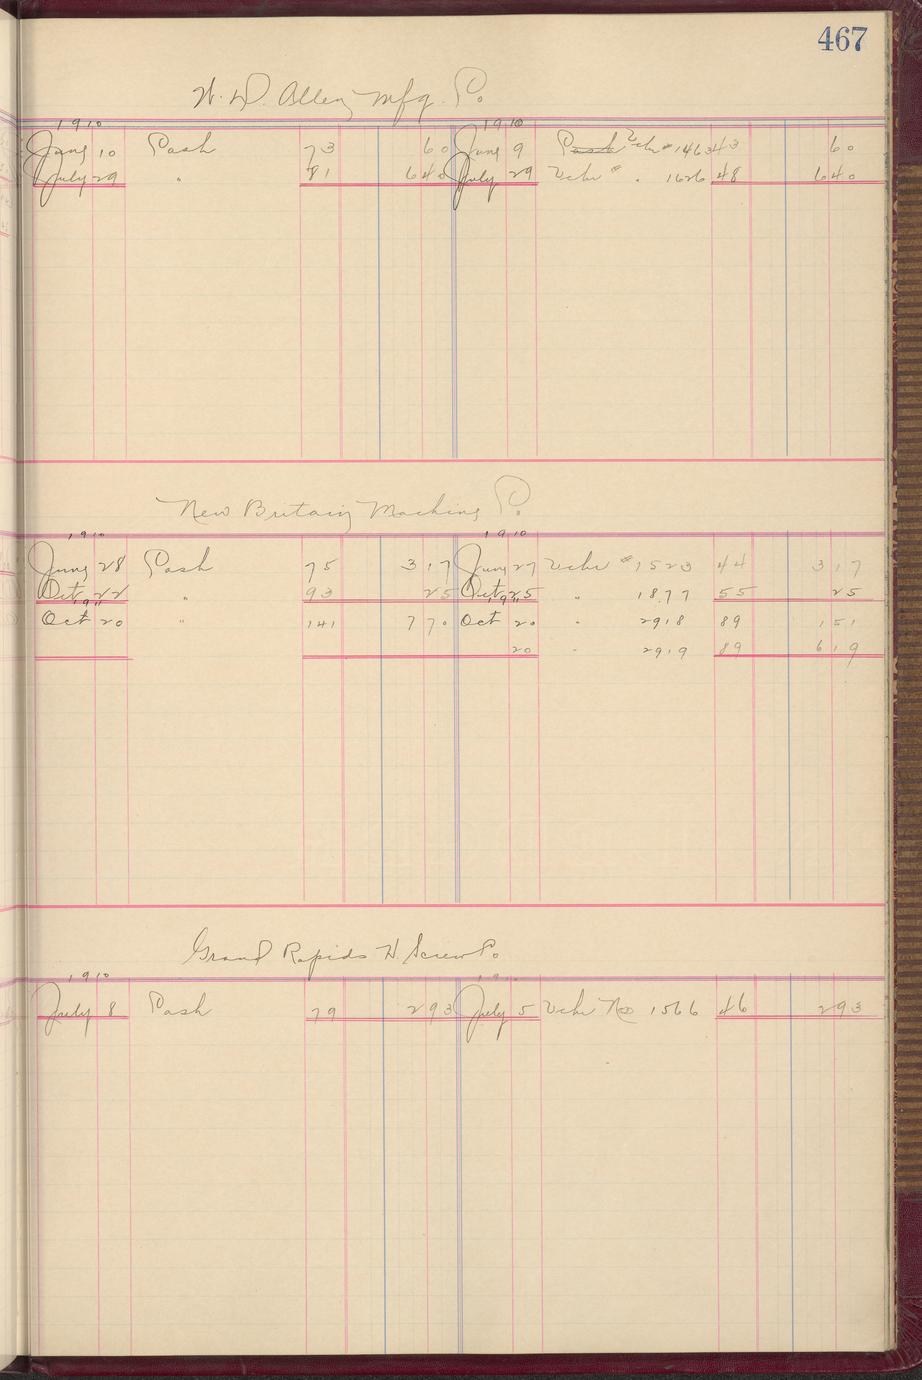 467
W. D. Allen Mfg. Co.
1910 1910
June 10 Cash 73 60 June 9 Cash Vchr # 1463 43 60
July 29 " 81 640 July 29 Vchr # " 1626 48 640
New Britain Machine Co.
1910 1910
June 28 Cash 75 317 June 27 Vchr # 1523 44 317
Oct 22 " 93 25 Oct 25 " 1877 55 25
Oct 20 " 141 770 Oct 20 " 2918 89 151
20 " 2919 89 619
Grand Rapids H. Screw Co.
1910 1910
July 8 Cash 79 293 July 5 Vchr No 1566 46 293